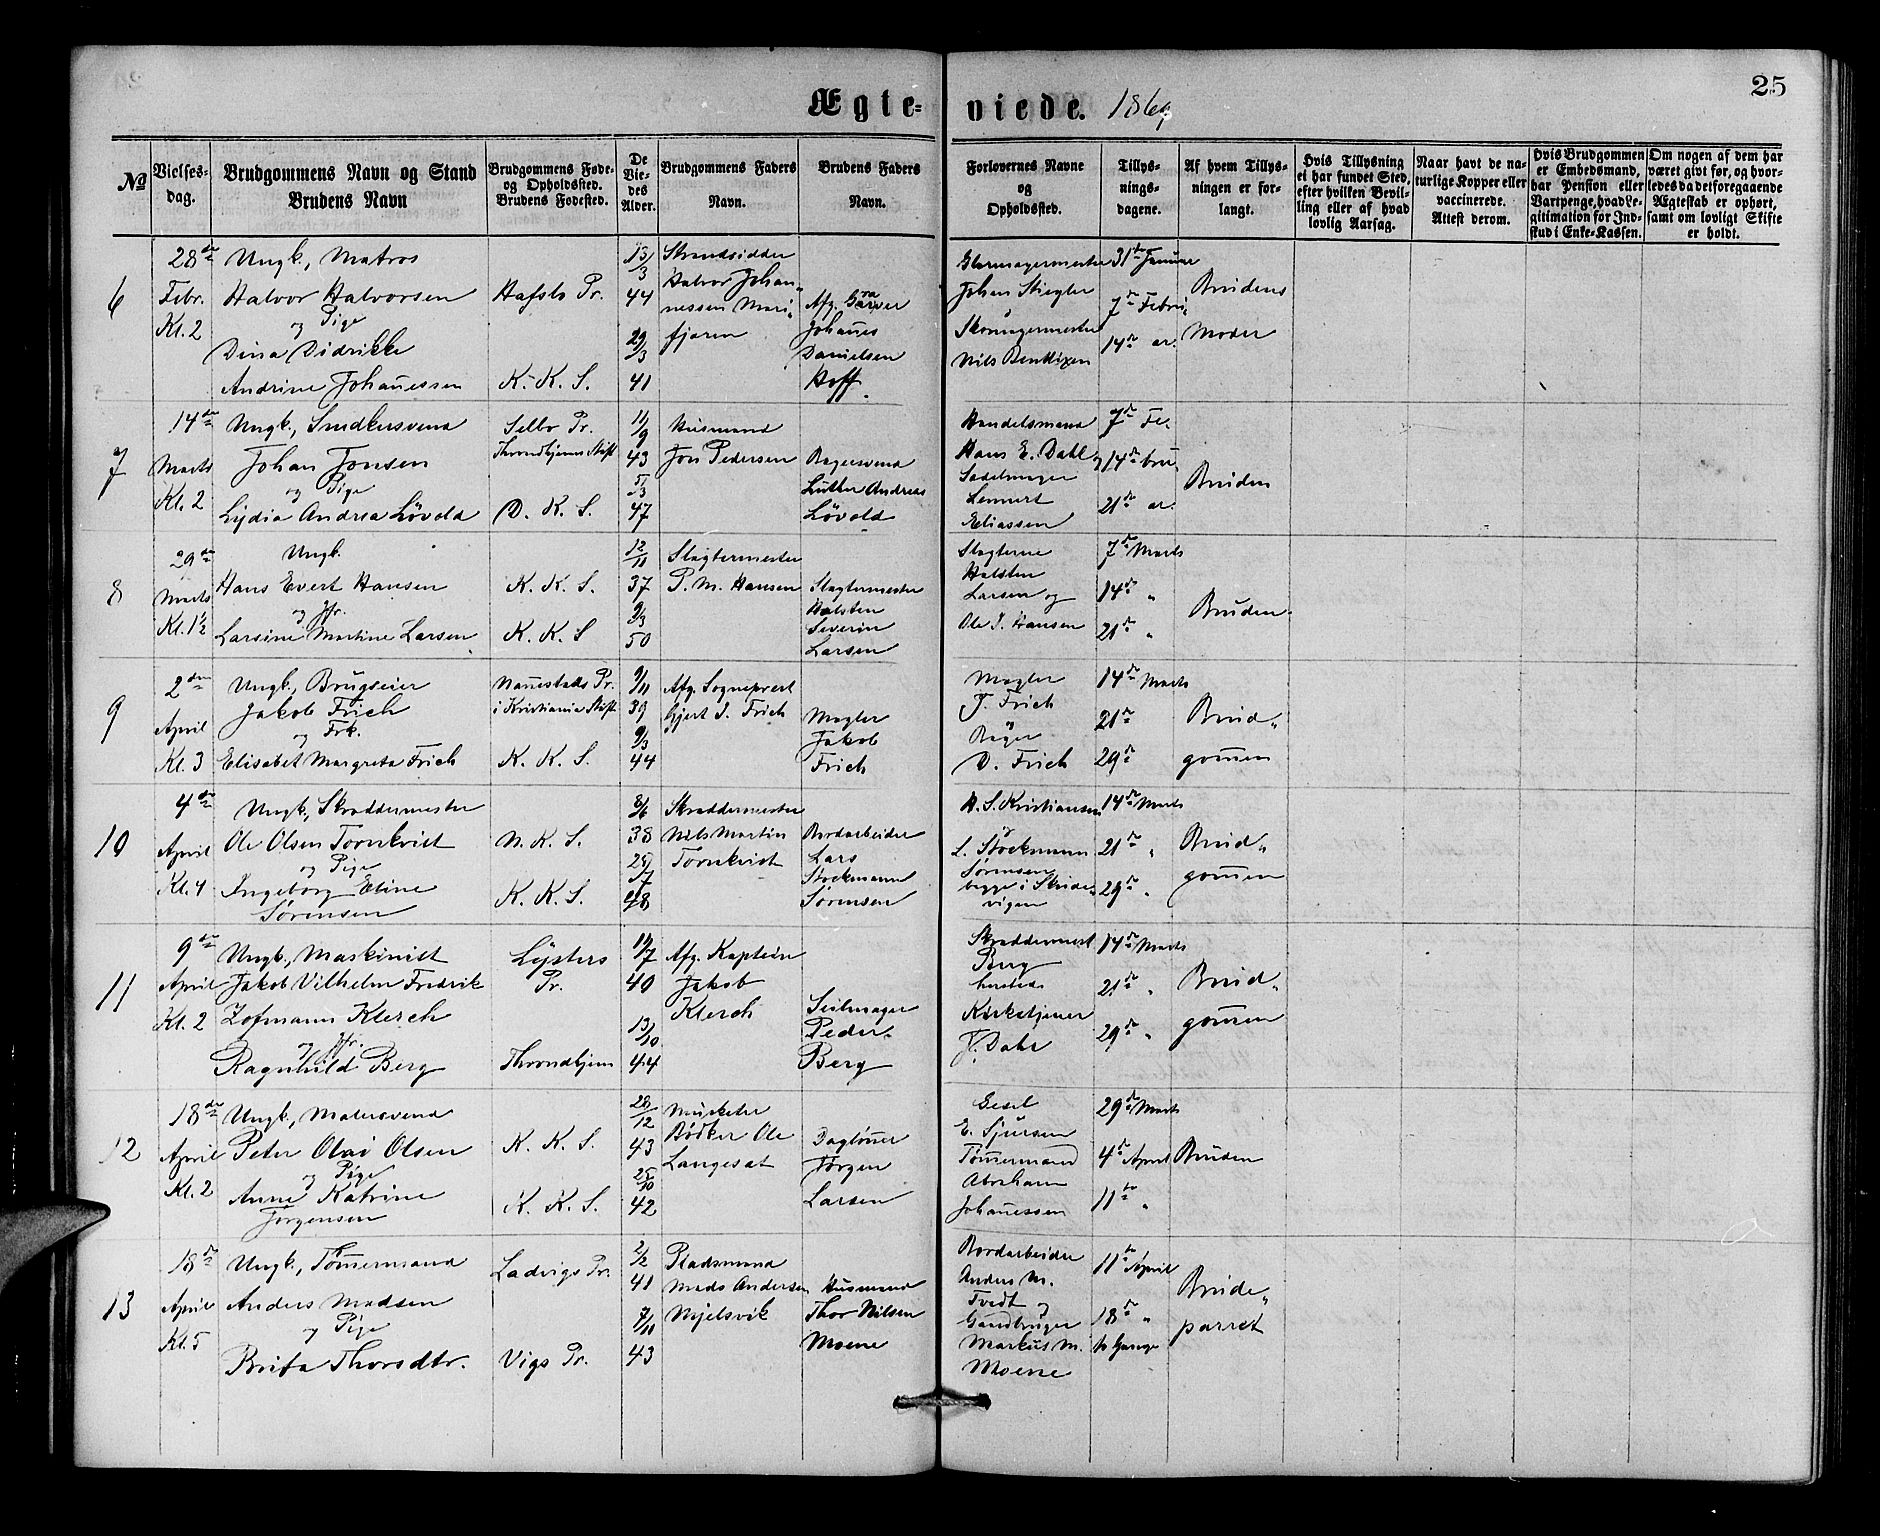 25
Ægte-viede. 1869
No
Vielses-dag.
Brudgommens Navn og Stand
Brudens Navn
Brudgommens Føde- og Opholdssted.
Brudens Fødested.
De Vie-des Alder.
Brudgommens Faders Navn.
Brudens Faders Navn.
Forlovernes Navne og Opholdssted.
Tillys-nings-dagene.
Af hvem Tillys-ningen er for-langt.
Hvis Tillysning ei har fundet Sted, efter hvilken Bevil-ling eller af hvad lovlig Aarsag.
Naar havt de na-turlige Kopper eller vaccinerede. Attest derom.
Hvis Brudgommen er Embedsmand, har Pension eller Vartpenge, hvad Le-gitimation for Ind-skud i Enke-Kassen.
Om nogen af dem har været givt før, og hvor-ledes da det foregaaende Ægteskab er ophørt, samt om lovligt Skifte er holdt.
6
28de Febr. Kl. 2
Ungk., Matros
Halvor Halvorsen
og Pige
Dina Didrikke
Andrine Johanessen
Hafslo Pr.
K. K. S.
13/3 44
29/3 41
Strandsidder
Halvor Johan-
nessen Mari-
fjæren
Afg. Garver
Johanes
Danielsen
Hoff.
Glarmagermester
Johan Stiegler
Skomagermester
Nils Bendixen
31te Januar
7de Febru-
14de ar.
Brudens
Moder
7
14de Marts Kl. 2
Ungk., Snedkersvend
Johan Jonsen
og Pige
Lydia Andrea Løvold
Selbo Pr.
Throndhjems Stift
D. K. S.
11/9 43
5/3 47
Husmand
Jon Pedersen
Bagersvend
Luther Andreas
Løvold
Handelsmand
Hans E. Dahl og
Sadelmager
Lennert
Eliassen
7de Fe-
14de bru-
21de ar.
Bruden
8
29de Marts Kl. 1½
Ungk.
Hans Evert Hansen
og Jfr.
Larsine Martine Larsen
K. K. S.
K. K. S
12/11 37
9/3 50
Slagtermester
P. M. Hansen
Slagtermester
Halsten
Severin
Larsen
Slagterne
Halsten
Larsen og
Ole J. Hansen
7de Marts
14de "
21de "
Bruden
9
2den April Kl. 3
Ungk., Brugseier
Jakob Frich
og Frk.
Elisabet Margreta Frich
Nannestads Pr.
i Kristiania Stift
K. K. S.
9/11 39
9/3 44
Afg. Sogneprest
Gjert J. Frich
Mægler
Jakob
Frich
Mægler
J. Frich
og
Bager
D. Frich
14de Marts
21de
29de
Brud-
gommen
10
4de April Kl. 4
Ungk., Skræddermester
Ole Olsen Tornkvist
og Pige
Ingeborg Eline
Sørensen
N. K. S.
K. K. S.
8/6 38
25/7 48
Skræddermester
Nils Martin
Tornkvist
Bordarbeider
Lars
Stockmann
Sørensen
H. S. Kristiansen
og
L. Stockmann
Sørensen
begge i Skude-
vigen
14de Marts
21de "
29de "
Brud-
gommen
11
9de April Kl. 2
Ungk., Maskinist
Jakob Vilhelm Fredrik
Zofmann Klerch
og Jfr.
Ragnhild Berg
Lysters
Pr.
Throndhjem
19/7 40
13/10 44
Afg. Kaptein
Jakob
Klerch
Seilmager
Peder
Berg
Skræddermest.
Berg
hersteds
Kirketjener
J. Dahl
14de Marts
21de "
29de "
Brud-
gommen
12
18de April Kl. 2
Ungk., Malersvend
Peter Olai Olsen
og Pige
Anne Katrine
Jørgensen
K. K. S.
K. K. S.
28/12 43
25/10 42
Musketer
Bødker Ole
Langesæt
Dagløner
Jørgen
Larsen
Gesel
E. Sjursen
Tømmermand
Abraham
Johanessen
29de Marts
4de April
11te "
Bruden
13
18de April Kl. 5
Ungk., Tømmermand
Anders Madsen
og Pige
Brita Thorsdtr.
Ladvigs Pr.
Vigs Pr.
2/2 41
7/11 43
Pladsmand
Mads Andersen
Mjelsvik
Husmand
Thor Nilsen
Moene
Bordarbeider
Anders M.
Tvedt og
Gaardbruger
Markus M.
Moene
11te April
18de "
to Gange
Brude-
parret